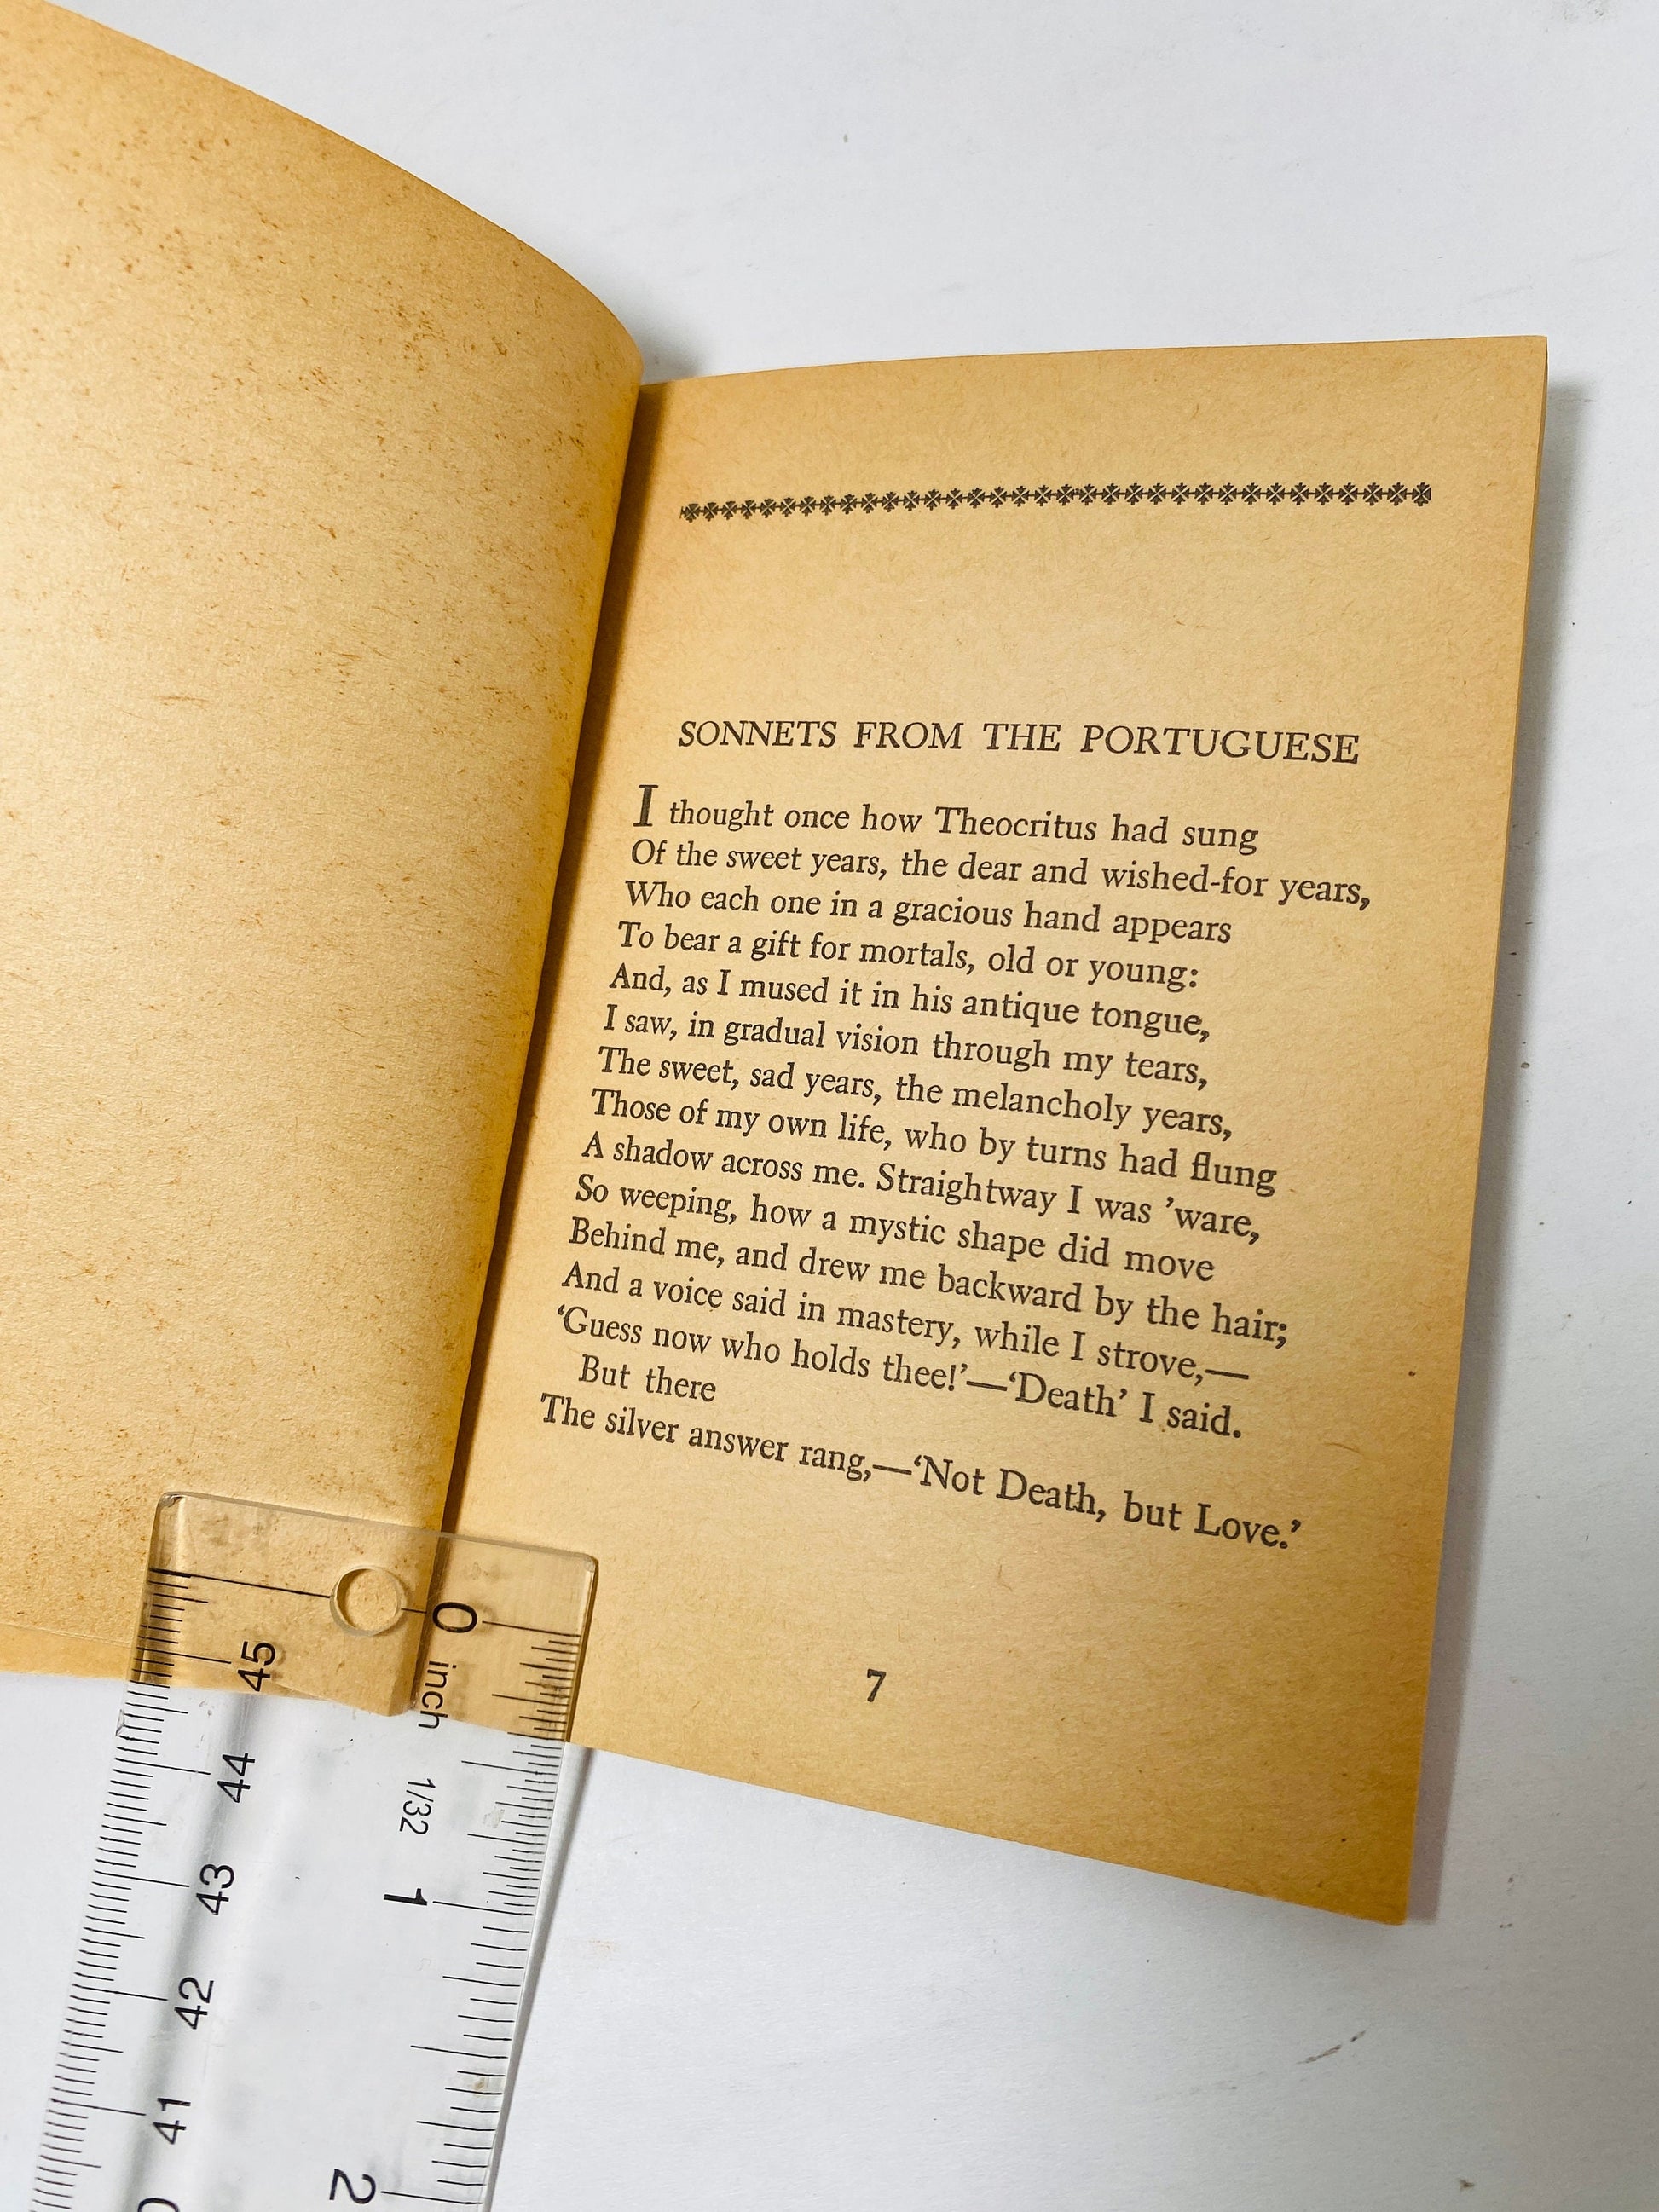 SONNETS FROM THE PORTUGUESE
I thought once how Theocritus had sung
Of the sweet years, the dear and wished-for years,
Who each one in a gracious hand appears
To bear a gift for mortals, old or young:
And, as I mused it in his antique tongue,
I saw, in gradual vision through my tears,
The sweet, sad years, the melancholy years,
Those of my own life, who by turns had flung
A shadow across me. Straightway I was 'ware,
So weeping, how a mystic shape did move
Behind me, and drew me backward by the hair;
And a voice said in mastery, while I strove,—
‘Guess now who holds thee!’—‘Death’ I said.
But there
The silver answer rang,—‘Not Death, but Love.’
7
0 inch 1/32
1
2
45
44
43
42
41